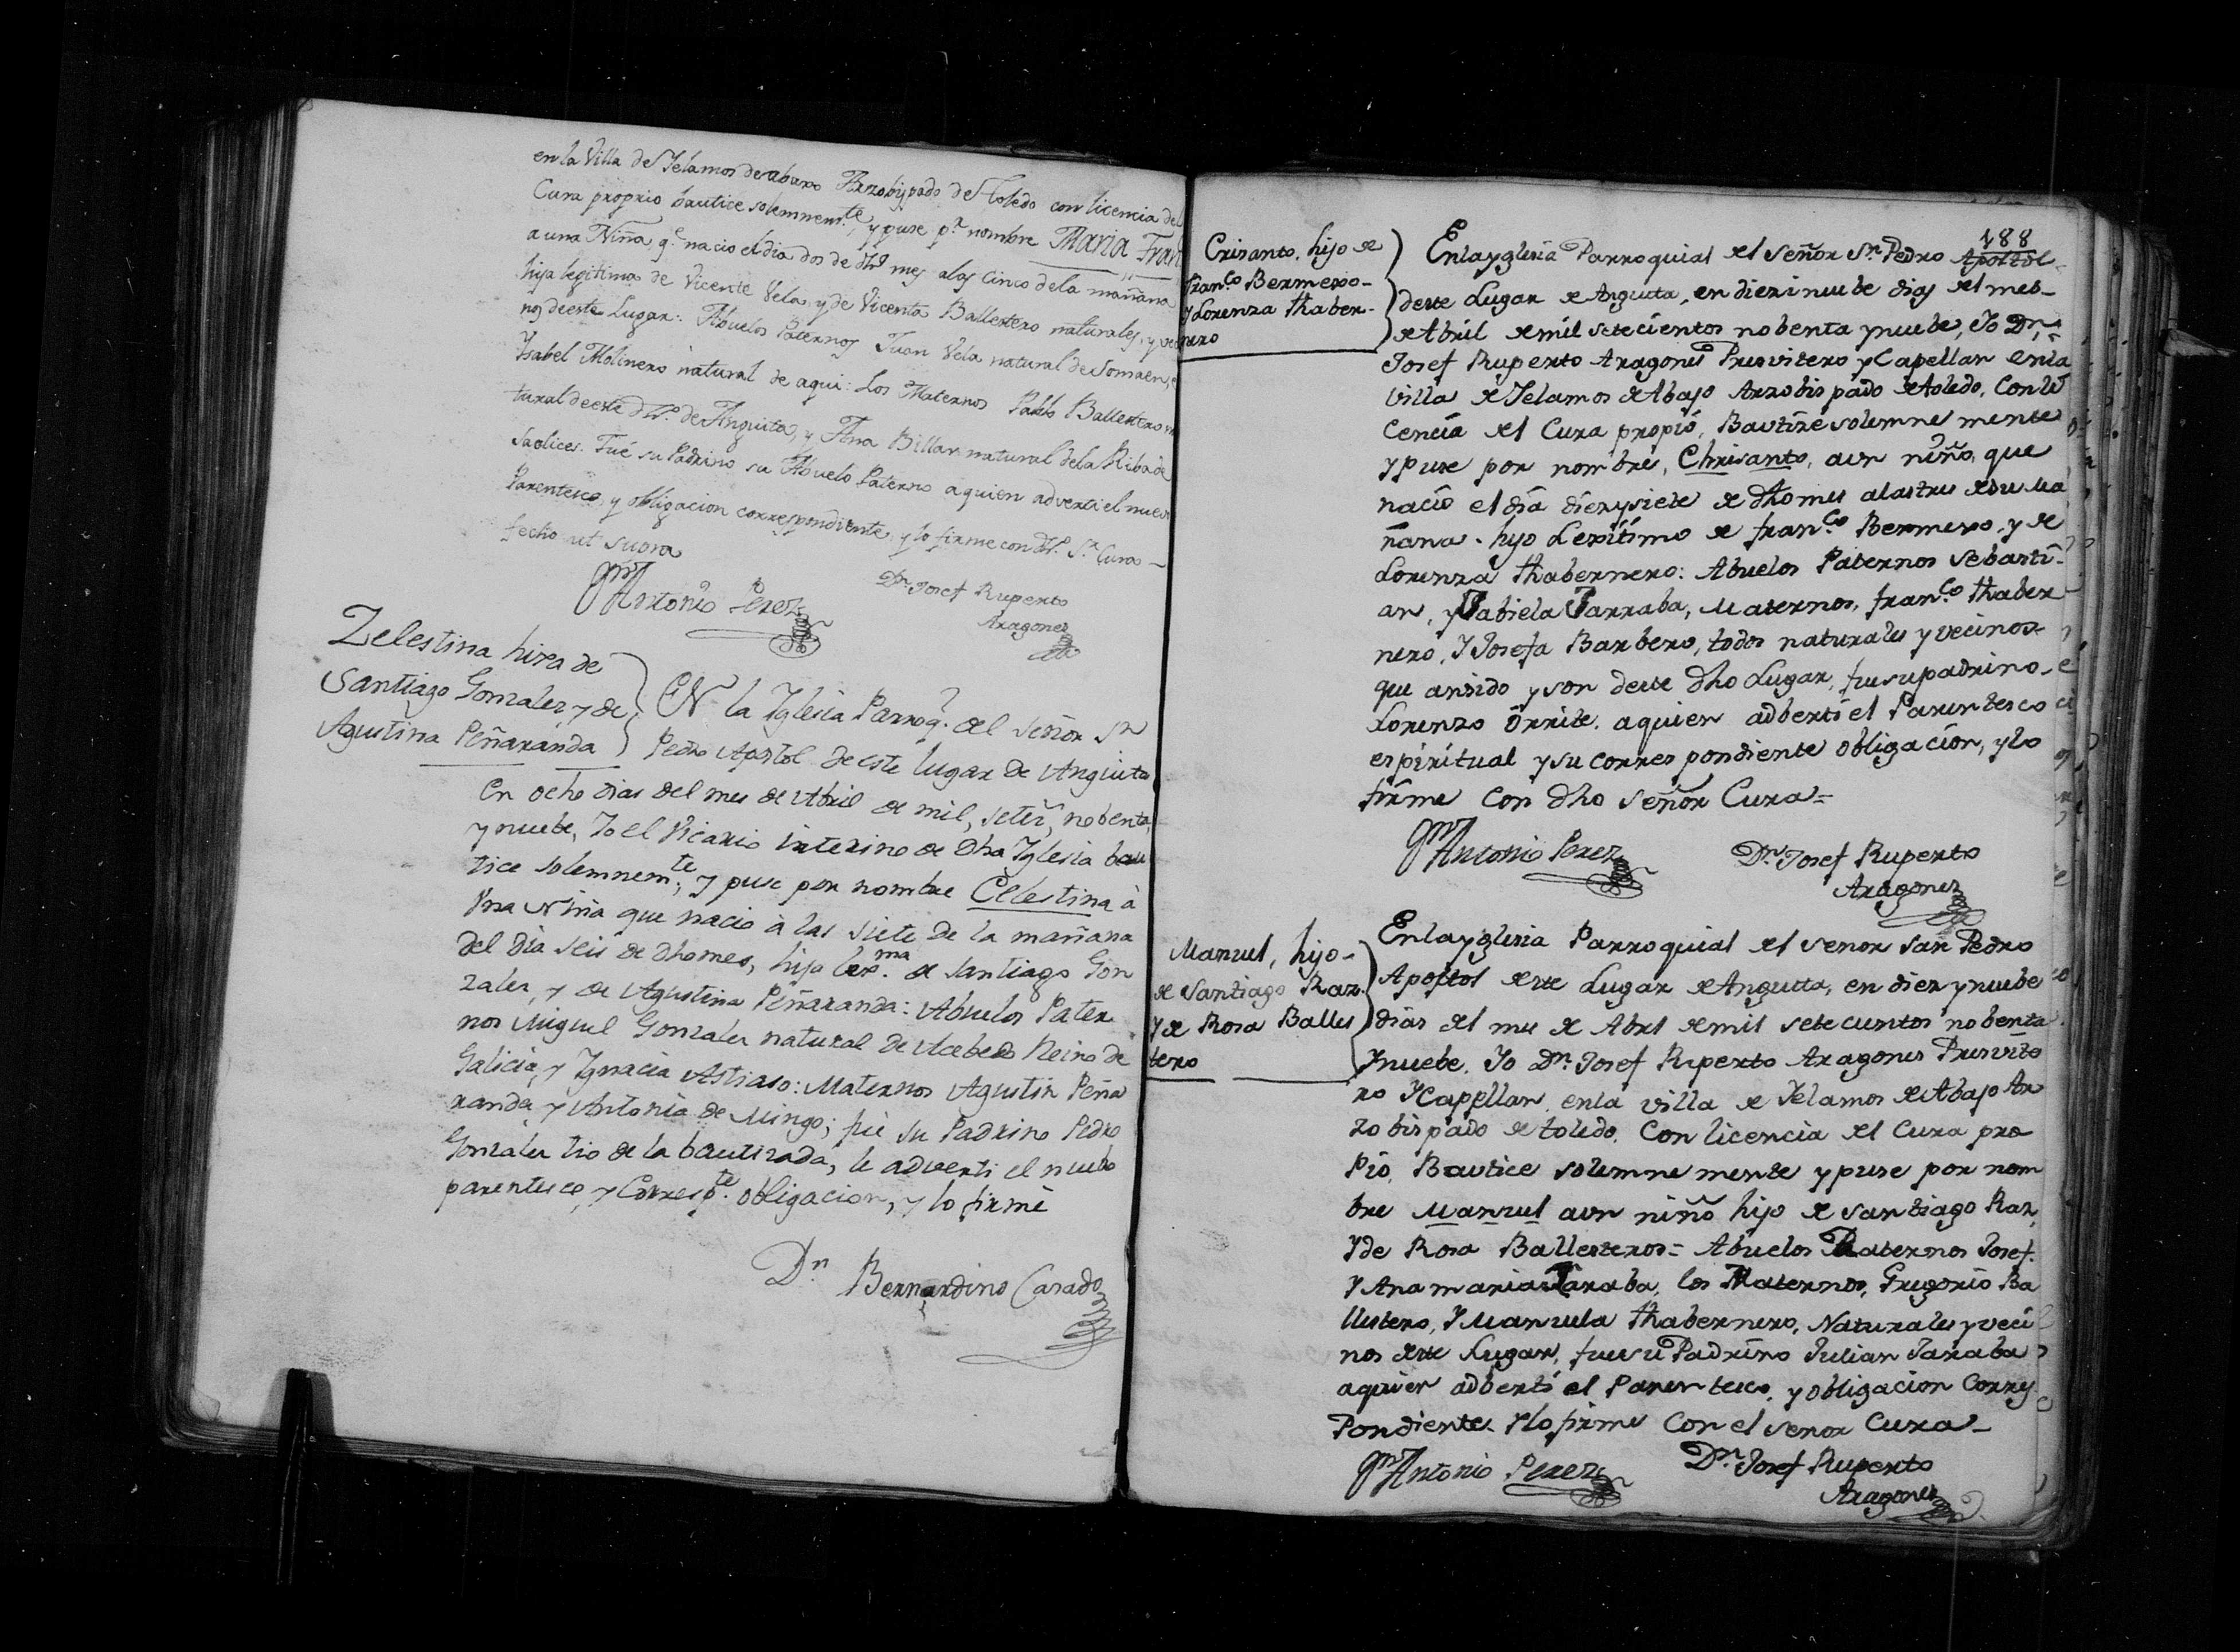 en la Villa de Yelamos de abaxo Arzobispado de Toledo con licencia del
Cura proprio bautice solemnem.te, y puse p.r nombre Maria Fran
a una Niña, q.e nacio el dia dos de dho mes a las cinco de la mañana
hija legitima de Vicente Vela, y de Vicenta Ballestero naturales, y veci
nos de este Lugar: Abuelos Paternos Juan Vela natural de Somaen, e
Ysabel Molinero natural de aqui: Los Maternos Pablo Ballestero na
tural de este dho. de Anguita, y Ana Billar natural de la Riba de
Saelices. Fué su Padrino su Abuelo Paterno a quien adverti el nuevo
Parentesco, y obligacion correspondiente, y lo firme con dho. S.r Cura
fecho ut supra
Antonio Perez
Dn. Josef Ruperto
Aragones
Zelestina hixa de
Santiago Gonzalez y de
Agustina Peñaranda
EN la Yglesia Parroq.l del Señor Sn
Pedro Apostol de este lugar de Anguita
en ocho dias del mes de Abril de mil, seteс, nobenta,
y nuebe, Yo el Vicario interino de dha Yglesia bau
tice solemnem.te; y puse por nombre Celestina à
Vna Niña que nacio à las siete de la mañana
del dia seis de dho mes, hija lex.ma de Santiago Gon
zalez, y de Agustina Peñaranda: Abuelos Pater
nos Miguel Gonzalez natural de Acebedo Reino de
Galicia, y Ygnacia Astiaso: Maternos Agustin Peña
randa, y Antonia de Mingo; fue su Padrino Pedro
Gonzalez tio de la bautizada, le adverti el nuebo
parentesco, y Corresp.te obligacion, y lo firmé
Dn Bernardino Casado
188
Crisanto, hijo de
Fran.co Bermexo
Y Lorenza thaber
nero
En la yglesia Parroquial del Señor Sn. Pedro Apostol
deste Lugar de Anguita, en diezinuebe dias del mes
de Abril de mil setecientos nobenta ynuebe, Yo Dn.
Josef Ruperto Aragones Presvitero y Capellan en la
Villa de Yelamos de Abajo Arzobispado de toledo, Con li
cencia del Cura propio, Bautize solemne mente
y puse por nombre, Chrisanto, aun niño, que
nacio el dia diez y siete de dho mes alastres de su ma
ñana. hijo Lexitimo de fran.co Bermexo, y de
Lorenza thabernero: Abuelos Paternos Sebasti
an, y Gabiela Tarraba, Maternos, fran.co thaber
nero, Y Josefa Barbero, todos naturales y vecinos
que ansido y son deste dho Lugar, fue su padrino
Lorenzo Orrite, aquien adberti el Parentesco
espiritual y su corres pondiente obligacion, y lo
firme con dho señor Cura=
Antonio Perez
Dn. Josef Ruperto
Aragones
Manuel, hijo
de Santiago Raz
Y de Rosa Balles
tero
En la yglesia Parroquial del senor san Pedro
Apostol deste Lugar de Anguita, en diez y nuebe
dias del mes de Abril de mil setecientos nobenta
ynuebe. Yo Dn. Josef Ruperto Aragones Presvite
ro Y Capellan en la villa de Yelamos de Abajo Ar
zobispado de toledo, Con licencia del Cura pro
pio, Bautice solemne mente y puse por nom
bre Manuel aun niño hijo de santiago Raz,
Y de Rosa Ballesteros= Abuelos Paternos Josef
Y Ana maria Taraba, los Maternos, Gregorio Ba
llestero, Y Manuela thabernero, Naturales y veci
nos deste Lugar, fue su Padrino Julian Taraba
aquien adberti el Parentesco, y obligacion Corres
Pondiente Y lo firme Con el senor Cura
Antonio Perez
Dn. Josef Ruperto
Aragones